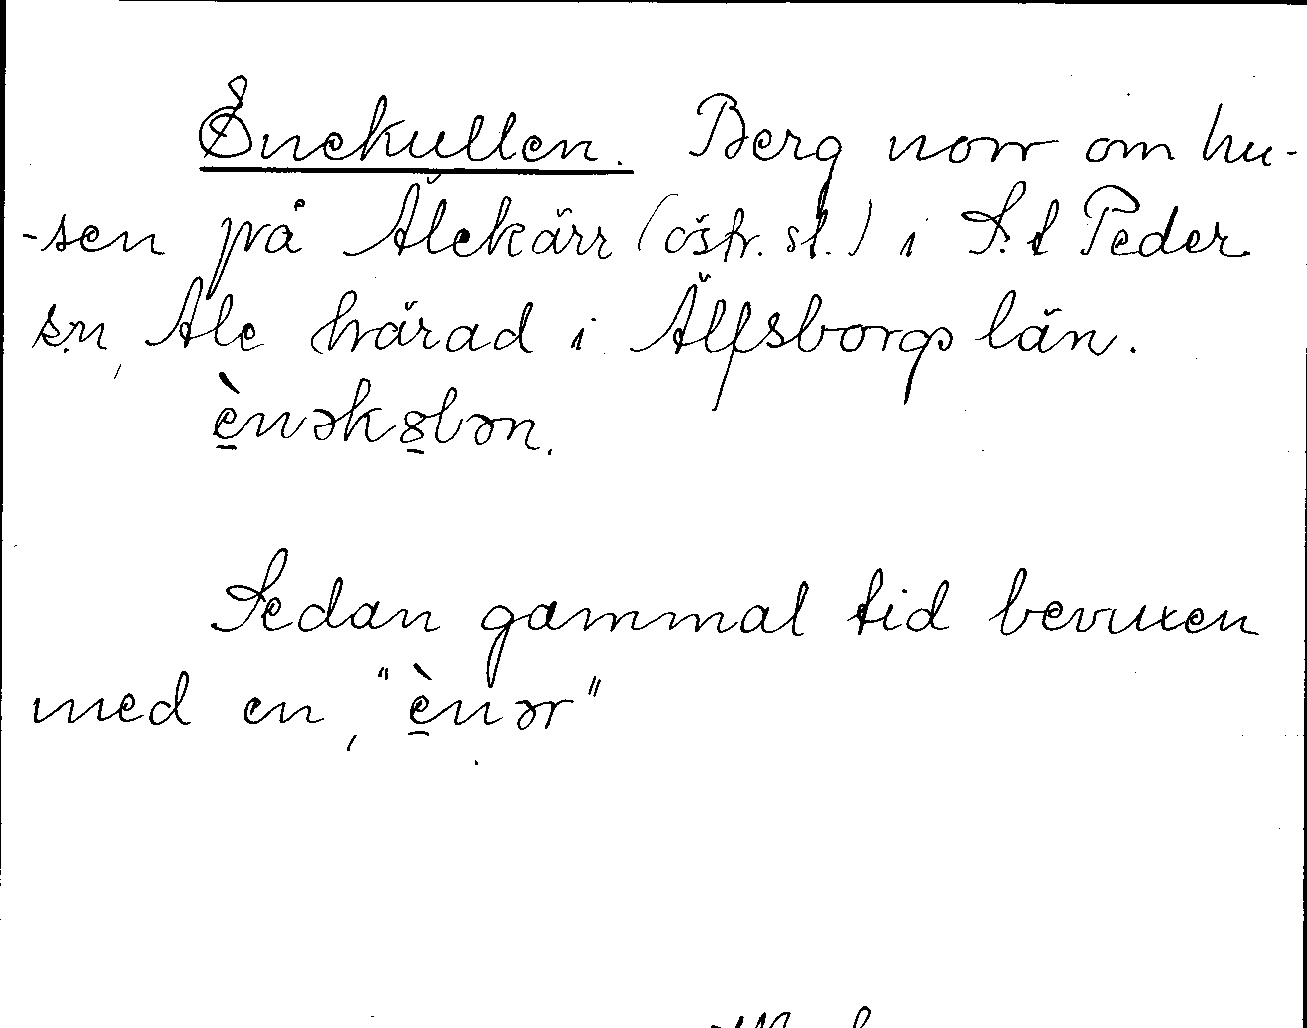 Enekullen. Berg norr om hu-
-sen på Älekärr (östr. sl.) i S:t Peder
s:n, Ale härad i Älfsborgs län.
ènəkslən.
Sedan gammal tid bevuxen
med en, "ènər"